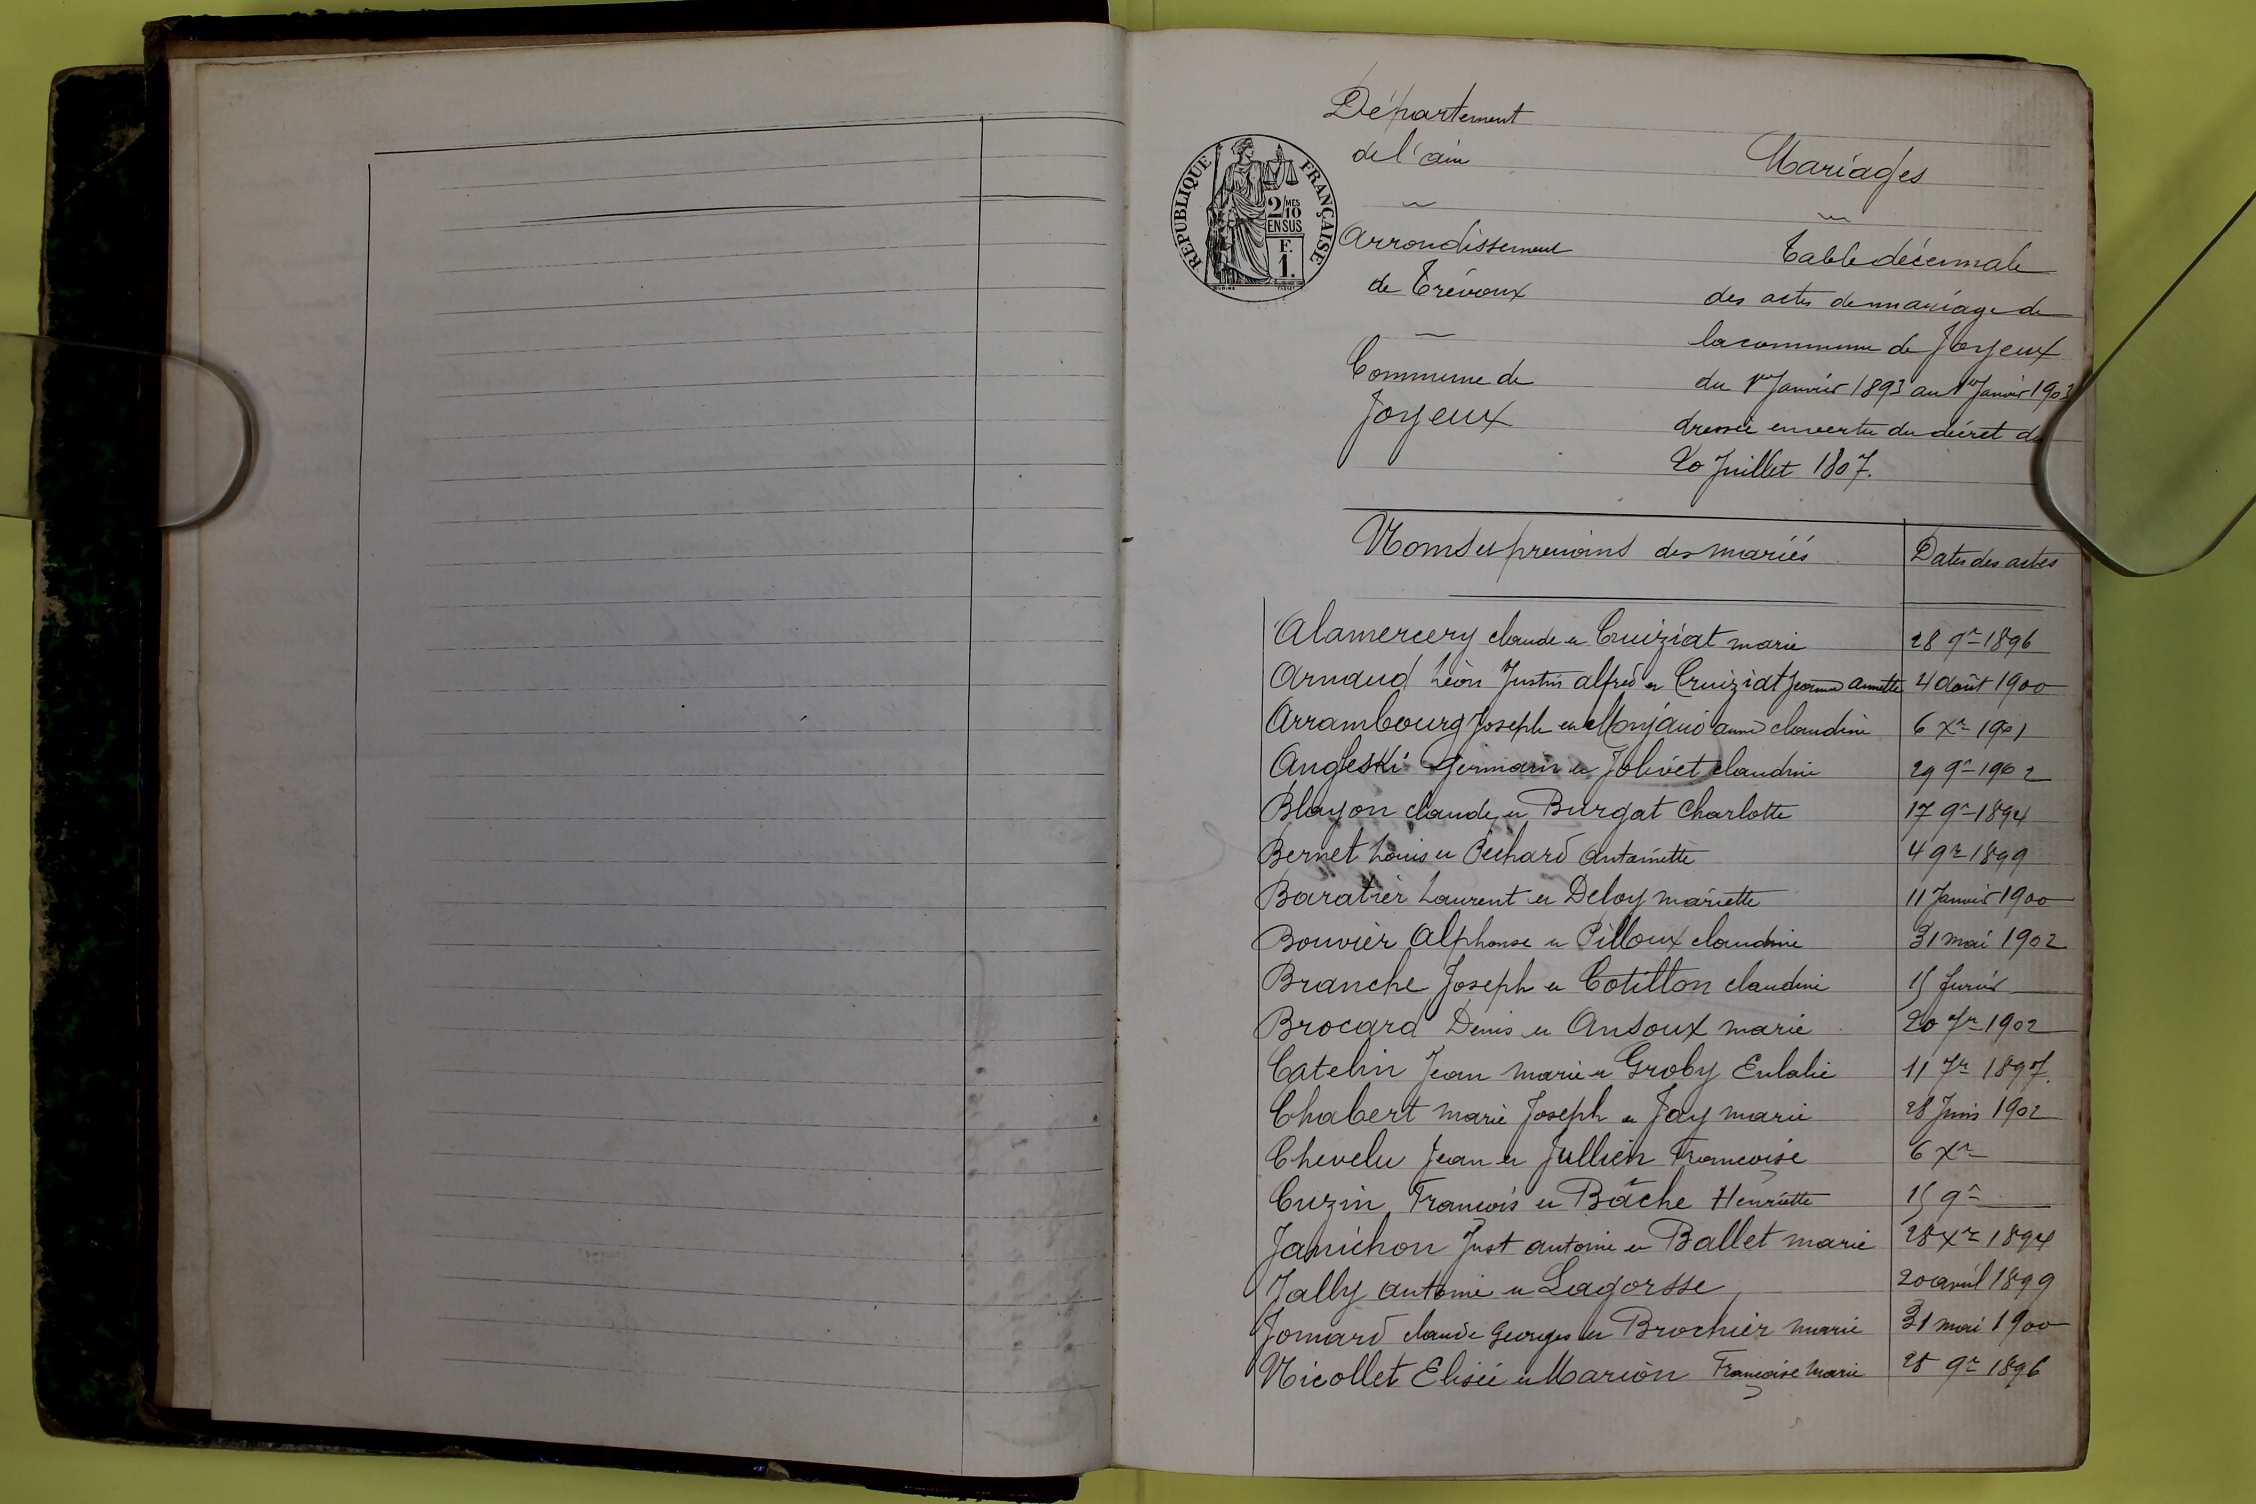 Département
de l'ain
REPUBLIQUE FRANÇAISE
2/10 MES
EN SUS
F.
1.
Arrondissement
de Trévoux
Commune de
Joyeux
Mariages
Table décennale
des actes de mariage de
la commune de Joyeux
du 1er Janvier 1893 au 1er Janvier 1903
dressée en vertu du décret du
20 Juillet 1807.
Noms et prenoms des mariés Dates des actes
Alamercery claude et Cruiziat marie 28 9re 1896
Arnaud Léon Justin alfred et Cruiziat Jeanne Annette 4 Août 1900
Arrambourg Joseph et Monjaud anne claudine 6 Xre 1901
Angleski Germain et Jolivet claudine 29 9re 1902
Blayon claude et Burgat Charlotte 17 9re 1894
Bernet Louis et Péchard Antoinette 4 9re 1899
Baratier Laurent et Deloy mariette 11 Janvier 1900
Bouvier Alphonse et Pilloux claudine 31 mai 1902
Branche Joseph et Cotillon claudine 15 fevrier
Brocard Denis et Ansoux marie 20 7re 1902
Catelin Jean marie et Groby Eulalie 11 7re 1897.
Chabert marie Joseph et Jay marie 28 Juin 1902
Chevelu Jean et Jullien Françoise 6 Xre
Cuzin François et Bâche Henriette 15 9re
Janichon Just antoine et Ballet marie 28 Xre 1894
Jally antoine et Lagorsse 20 avril 1899
Jomard claude Georges et Brochier marie 31 mai 1900
Nicollet Elisée et Marion Françoise Marie 28 9re 1896